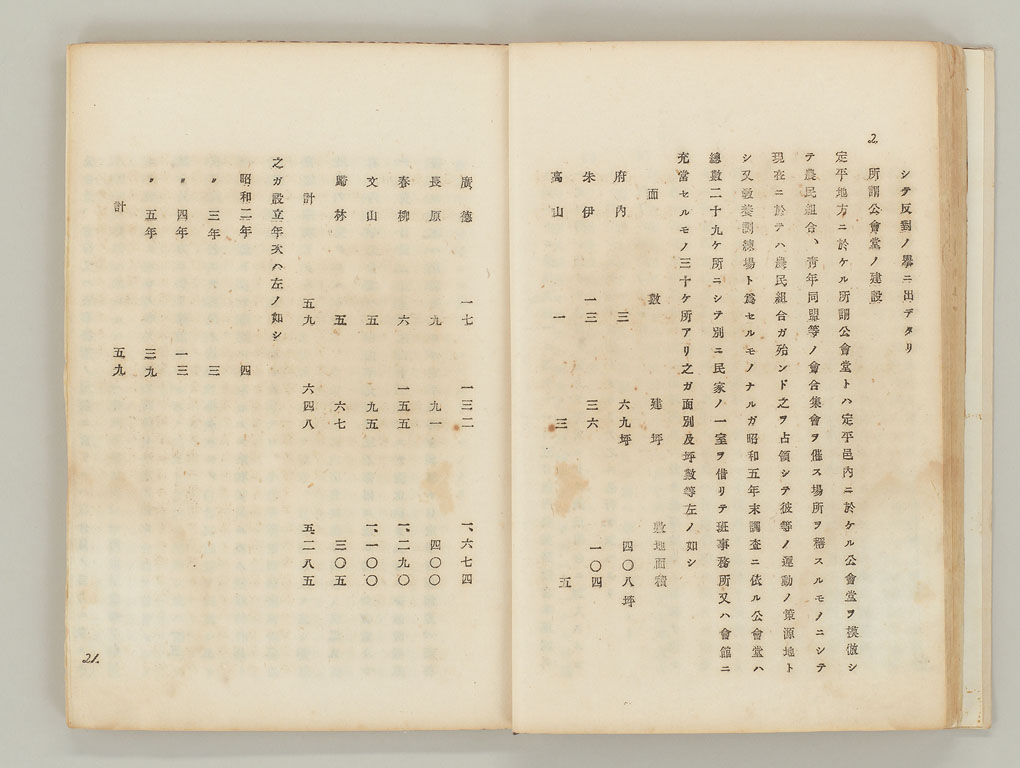 シテ反對ノ擧ニ出デタリ
2. 所謂公會堂ノ建設
定平地方ニ於ケル所謂公會堂トハ定平邑內ニ於ケル公會堂ヲ摸倣シ
テ農民組合、靑年同盟等ノ會合集會ヲ催ス場所ヲ稱スルモノニシテ
現在ニ於テハ農民組合ガ殆ンド之ヲ占領シテ彼等ノ運動ノ策源地ト
シ又敎養訓練場ト爲セルモノナルガ昭和五年末調査ニ依ル公會堂ハ
總數二十九ケ所ニシテ別ニ民家ノ一室ヲ借リテ班事務所又ハ會館ニ
充當セルモノ三十ケ所アリ之ガ面別及坪數等左ノ如シ
面 數 建坪 敷地面積
府內 三 六九坪 四〇八坪
朱伊 一三 三六 一〇四
高山 一 三 五
廣德 一七 一三二 一、六七四
長原 九 九一 四〇〇
春柳 六 一五五 一、二九〇
文山 五 九五 一、一〇〇
歸林 五 六七 三〇五
計 五九 六四八 五、二八五
之ガ設立年次ハ左ノ如シ
昭和二年 四
〃 三年 三
〃 四年 一三
〃 五年 三九
計 五九
21.